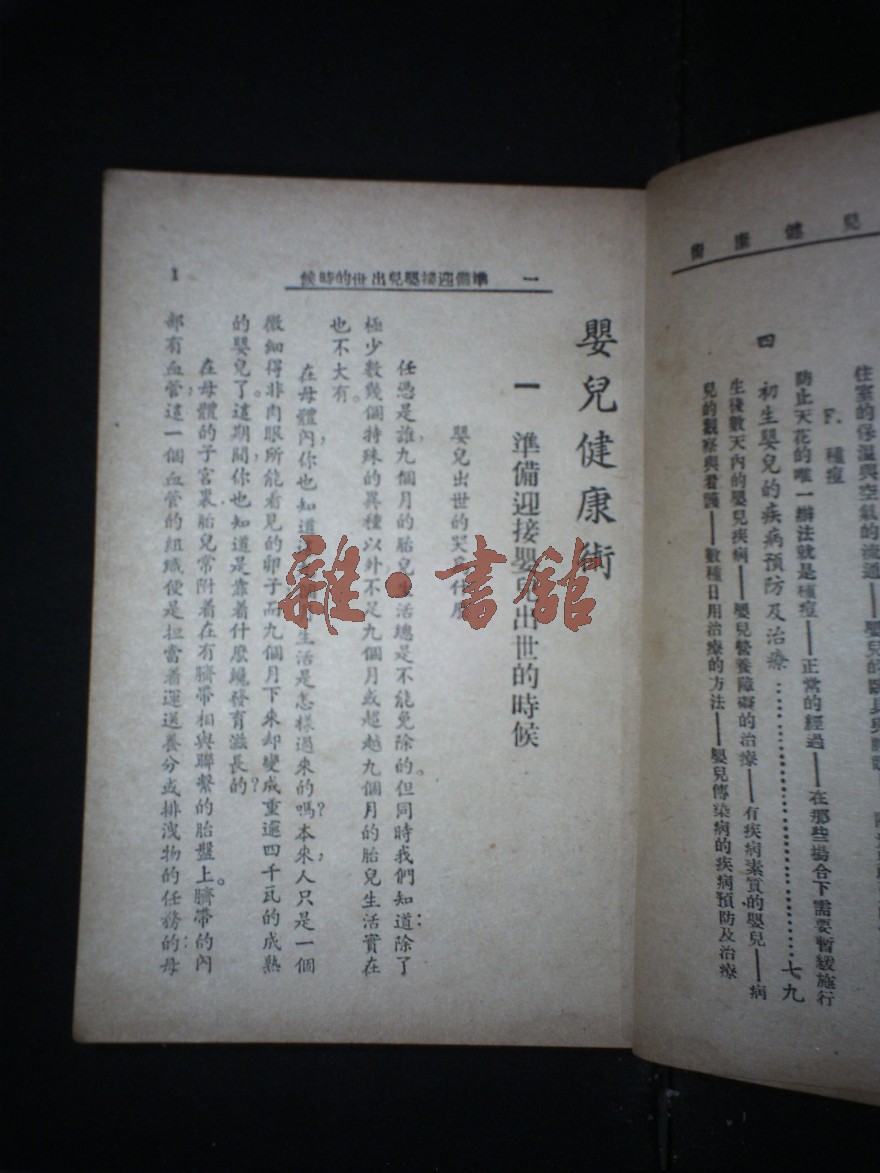 兒健康術
住室的保溫與空氣的流通——嬰兒的
F. 種痘
防止天花的唯一辦法就是種痘——正常的經過——在那些場合下需要暫緩施行
四 初生嬰兒的疾病預防及治療…………………七九
生後數天內的嬰兒疾病——嬰兒營養障礙的治療——有疾病素質的嬰兒——病
兒的觀察與看護——數種日用治療的方法——嬰兒傳染病的疾病預防及治療
一 準備迎接嬰兒出世的時候
1
嬰兒健康術
一 準備迎接嬰兒出世的時候
嬰兒出世的哭爲什麼
任憑是誰,九個月的胎兒生活總是不能免除的。但同時我們知道:除了
極少數幾個特殊的異種以外,不足九個月或超越九個月的胎兒生活,實在
也不大有。
在母體內,你也知道 生活是怎樣過來的嗎?本來,人只是一個
微細得非肉眼所能看見的卵子,而九個月下來,却變成重逾四千瓦的成熟
的嬰兒了。這期間,你也知道是靠着什麼纔發育滋長的?
在母體的子宮裏,胎兒常附着在有臍帶相與聯繫的胎盤上。臍帶的內
部有血管,這一個血管的組織,便是担當着運送養分或排洩物的任務的:母
雜·書館